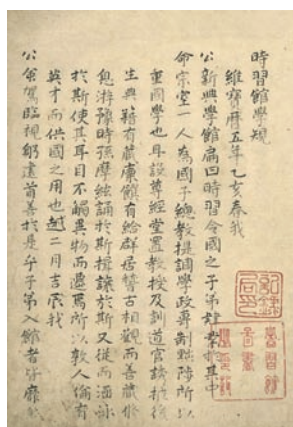 時習館學規
維寶暦五年乙亥春我
公新興學館扁曰時習令國之子弟肄業於其中
命宗室一人為國子總教提調學政專制黜陟所以
重國學也且設尊經堂置教授及訓導官該於後
生典籍有藏廩餼有給群居嘗古相觀而善藏修
息游豫時孫摩絃誦於斯揖讓於斯又従而涵泳
於斯使其耳目不觸異物而遷焉所以敦人倫育
英才而供國之用也越二月吉辰我
公命駕臨視躬遣首善於是乎子弟入館者皆靡然